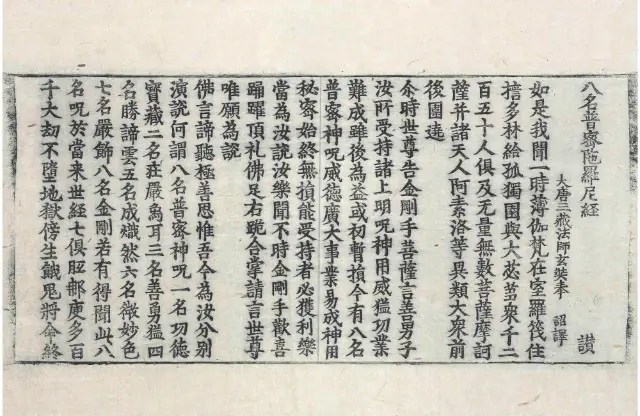 八名普密陁羅尼経
大唐三藏法師玄奘奉 詔譯 讃
如是我聞一時薄伽梵在室羅筏住
多林給孤獨園與大苾芻衆千二
百五十人俱及无量無數菩薩摩訶
薩并諸天人阿素洛等異類大衆前
後圍遶
尒時世尊告金剛手菩薩言善男子
汝所受持諸上明呪神用威猛功業
難成雖後為益或初暫損今有八名
普密神呪威德廣大事業易成神用
秘密始終無損能受持者必獲利樂
當為汝說汝樂聞不時金剛手歡喜
踊躍頂礼佛足右跪合掌請言世尊
唯願為說
佛言諦聽極善思惟吾今為汝分別
演說何謂八名普密神呪一名功德
寶藏二名莊嚴爲耳三名善勇猛四
名勝諦雲五名成熾然六名微妙色
七名嚴飾八名金剛若有得聞此八
名呪於當来世経七俱胝那庾多百
千大劫不墮地獄傍生餓鬼將命終